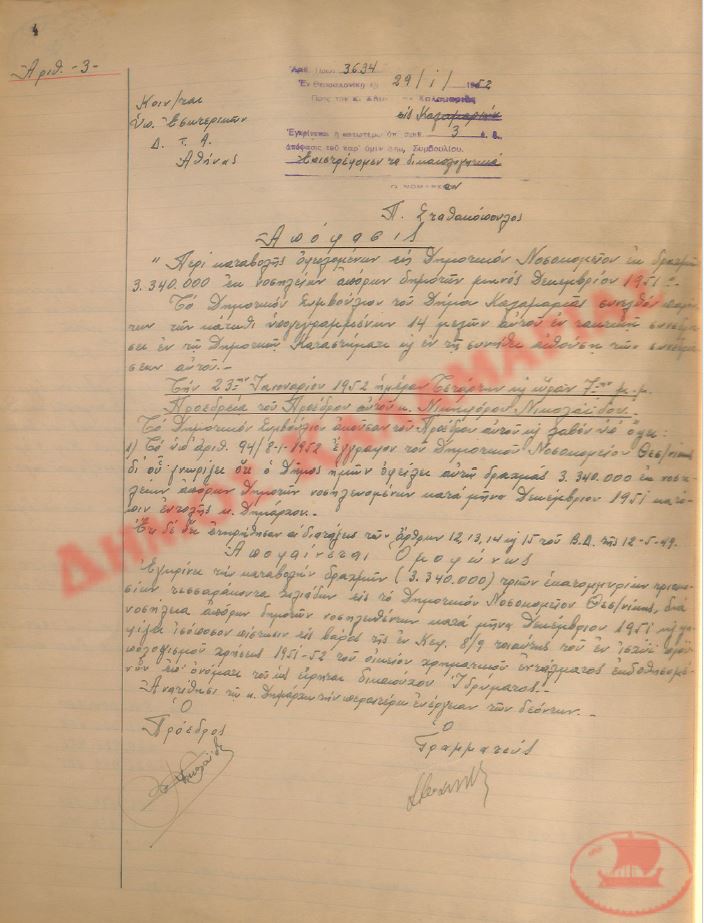 4
Ἀριθ. -3-
Ἀριθ. Πρωτ. 3634
Ἐν Θεσσαλονίκῃ τῇ 29/1/1952
Πρὸς τὸν κ. Δήμαρχον Καλαμαριᾶς
εἰς Καλαμαριάν
Ἐγκρίνεται ἡ κατωτέρω ὑπ' ἀριθ. 3 ἐ. ἔ.
ἀπόφασις τοῦ παρ' ὑμῖν Δημ. Συμβουλίου.
Ἐπιστρέφομεν τὰ δικαιολογητικά
Ο ΝΟΜΑΡΧΗΣ
Π. Σταθακόπουλος
Κοιν/ται
Ὑπ. Ἐσωτερικῶν
Δ. Τ. Α.
Ἀθήνας
Ἀπόφασις
"Περὶ καταβολῆς ὀφειλομένων εἰς Δημοτικὸν Νοσοκομεῖον ἐκ δραχμῶν
3.340.000 ἐκ νοσηλειῶν ἀπόρων δημοτῶν μηνὸς Δεκεμβρίου 1951"
Τὸ Δημοτικὸν Συμβούλιον τοῦ Δήμου Καλαμαριᾶς συνελθὸν παρόν-
των τῶν κάτωθι ὑπογεγραμμένων 14 μελῶν αὐτοῦ ἐν τακτικῇ συνεδριά-
σει ἐν τῷ Δημοτικῷ Καταστήματι κ ἐν τῇ συνήθει αἰθούσῃ τῶν συνεδριά-
σεων αὐτοῦ.-
Τὴν 23ην Ἰανουαρίου 1952 ἡμέραν Τετάρτην κ ὥραν 7ην μ.μ.
Προεδρείᾳ τοῦ Προέδρου αὐτοῦ κ. Νικηφόρου Νικολαΐδου.-
Τὸ Δημοτικὸν Συμβούλιον ἀκοῦσαν τοῦ Προέδρου αὐτοῦ κ λαβὸν ὑπ' ὄψει:
1) Τὸ ὑπ' ἀριθ. 94/8-1-1952 ἔγγραφον τοῦ Δημοτικοῦ Νοσοκομείου Θεσ/νίκης
δι' οὗ γνωρίζει ὅτι ὁ Δῆμος ἡμῶν ὀφείλει αὐτῇ δραχμὰς 3.340.000 ἐκ νοση-
λειῶν ἀπόρων δημοτῶν νοσηλευομένων κατὰ μῆνα Δεκεμβρίου 1951 κατό-
πιν ἐντολῆς κ. Δημάρχου.-
Ἐπειδὴ ἐτηρήθησαν αἱ διατάξεις τῶν ἄρθρων 12,13,14 κ 15 τοῦ Β.Δ. τῆς 12-5-49.
Ἀποφαίνεται Ὁμοφώνως
Ἐγκρίνει τὴν καταβολὴν δραχμῶν (3.340.000) τριῶν ἑκατομμυρίων τριακο-
σίων τεσσαράκοντα χιλιάδων εἰς τὸ Δημοτικὸν Νοσοκομεῖον Θεσ/νίκης, διὰ
νοσήλεια ἀπόρων δημοτῶν νοσηλευθέντων κατὰ μῆνα Δεκεμβρίου 1951 κ ψη-
φίζει ἰσόποσον πίστωσιν εἰς βάρος τῆς ἐν Κεφ. 8/9 τοιαύτης τοῦ ἐν ἰσχύϊ προϋ-
πολογισμοῦ χρήσεως 1951-52 τοῦ οἰκείου χρηματικοῦ ἐντάλματος ἐκδοθησομέ-
νου ἐπ' ὀνόματι τοῦ ὡς εἴρηται δικαιούχου Ἱδρύματος.-
Ἀνατίθησι τῷ κ. Δημάρχῳ τὴν περαιτέρω ἐνέργειαν τῶν δεόντων.-
Ὁ
Πρόεδρος
Ὁ
Γραμματεύς
ΔΗΜΟΣ ΚΑΛΑΜΑΡΙΑΣ